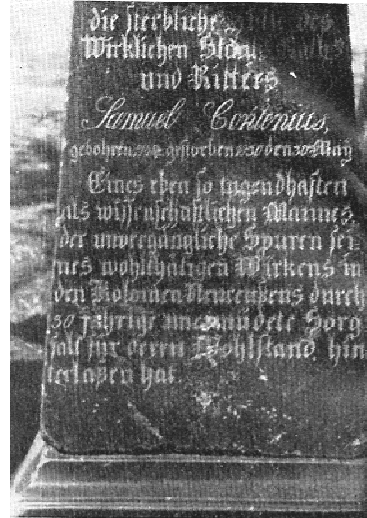 die sterbliche Hülle des
Wirklichen Staats Raths
und Ritters
Samuel Contenius,
gebohren gestorben 1830 den 30 May
Eines eben so tugendhaften
als wissenschaftlichen Mannes,
der unvergängliche Spuren sei-
nes wohlthätigen Wirkens in
den Kolonien Neureußens durch
30 jährige unermüdete Sorg
falt für deren Wohlstand, hin
terlaßen hat.